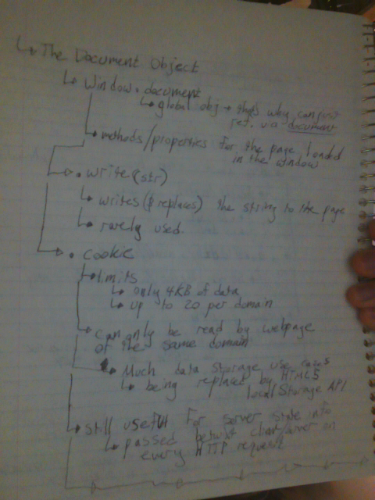 ↳ The Document Object
↳ Window.document
↳ global obj → that's why can just
ref. via document
• methods/properties for the page loaded
in the window
• write(str)
↳ writes (& replaces) the string to the page
↳ rarely used.
• cookie
↳ limits
↳ only 4KB of data
↳ up to 20 per domain
↳ can only be read by webpage
of the same domain
↳ Much data storage use
↳ being replaced by HTML5
local Storage API
↳ still useful for server state info
↳ passed between client/server in
every HTTP request